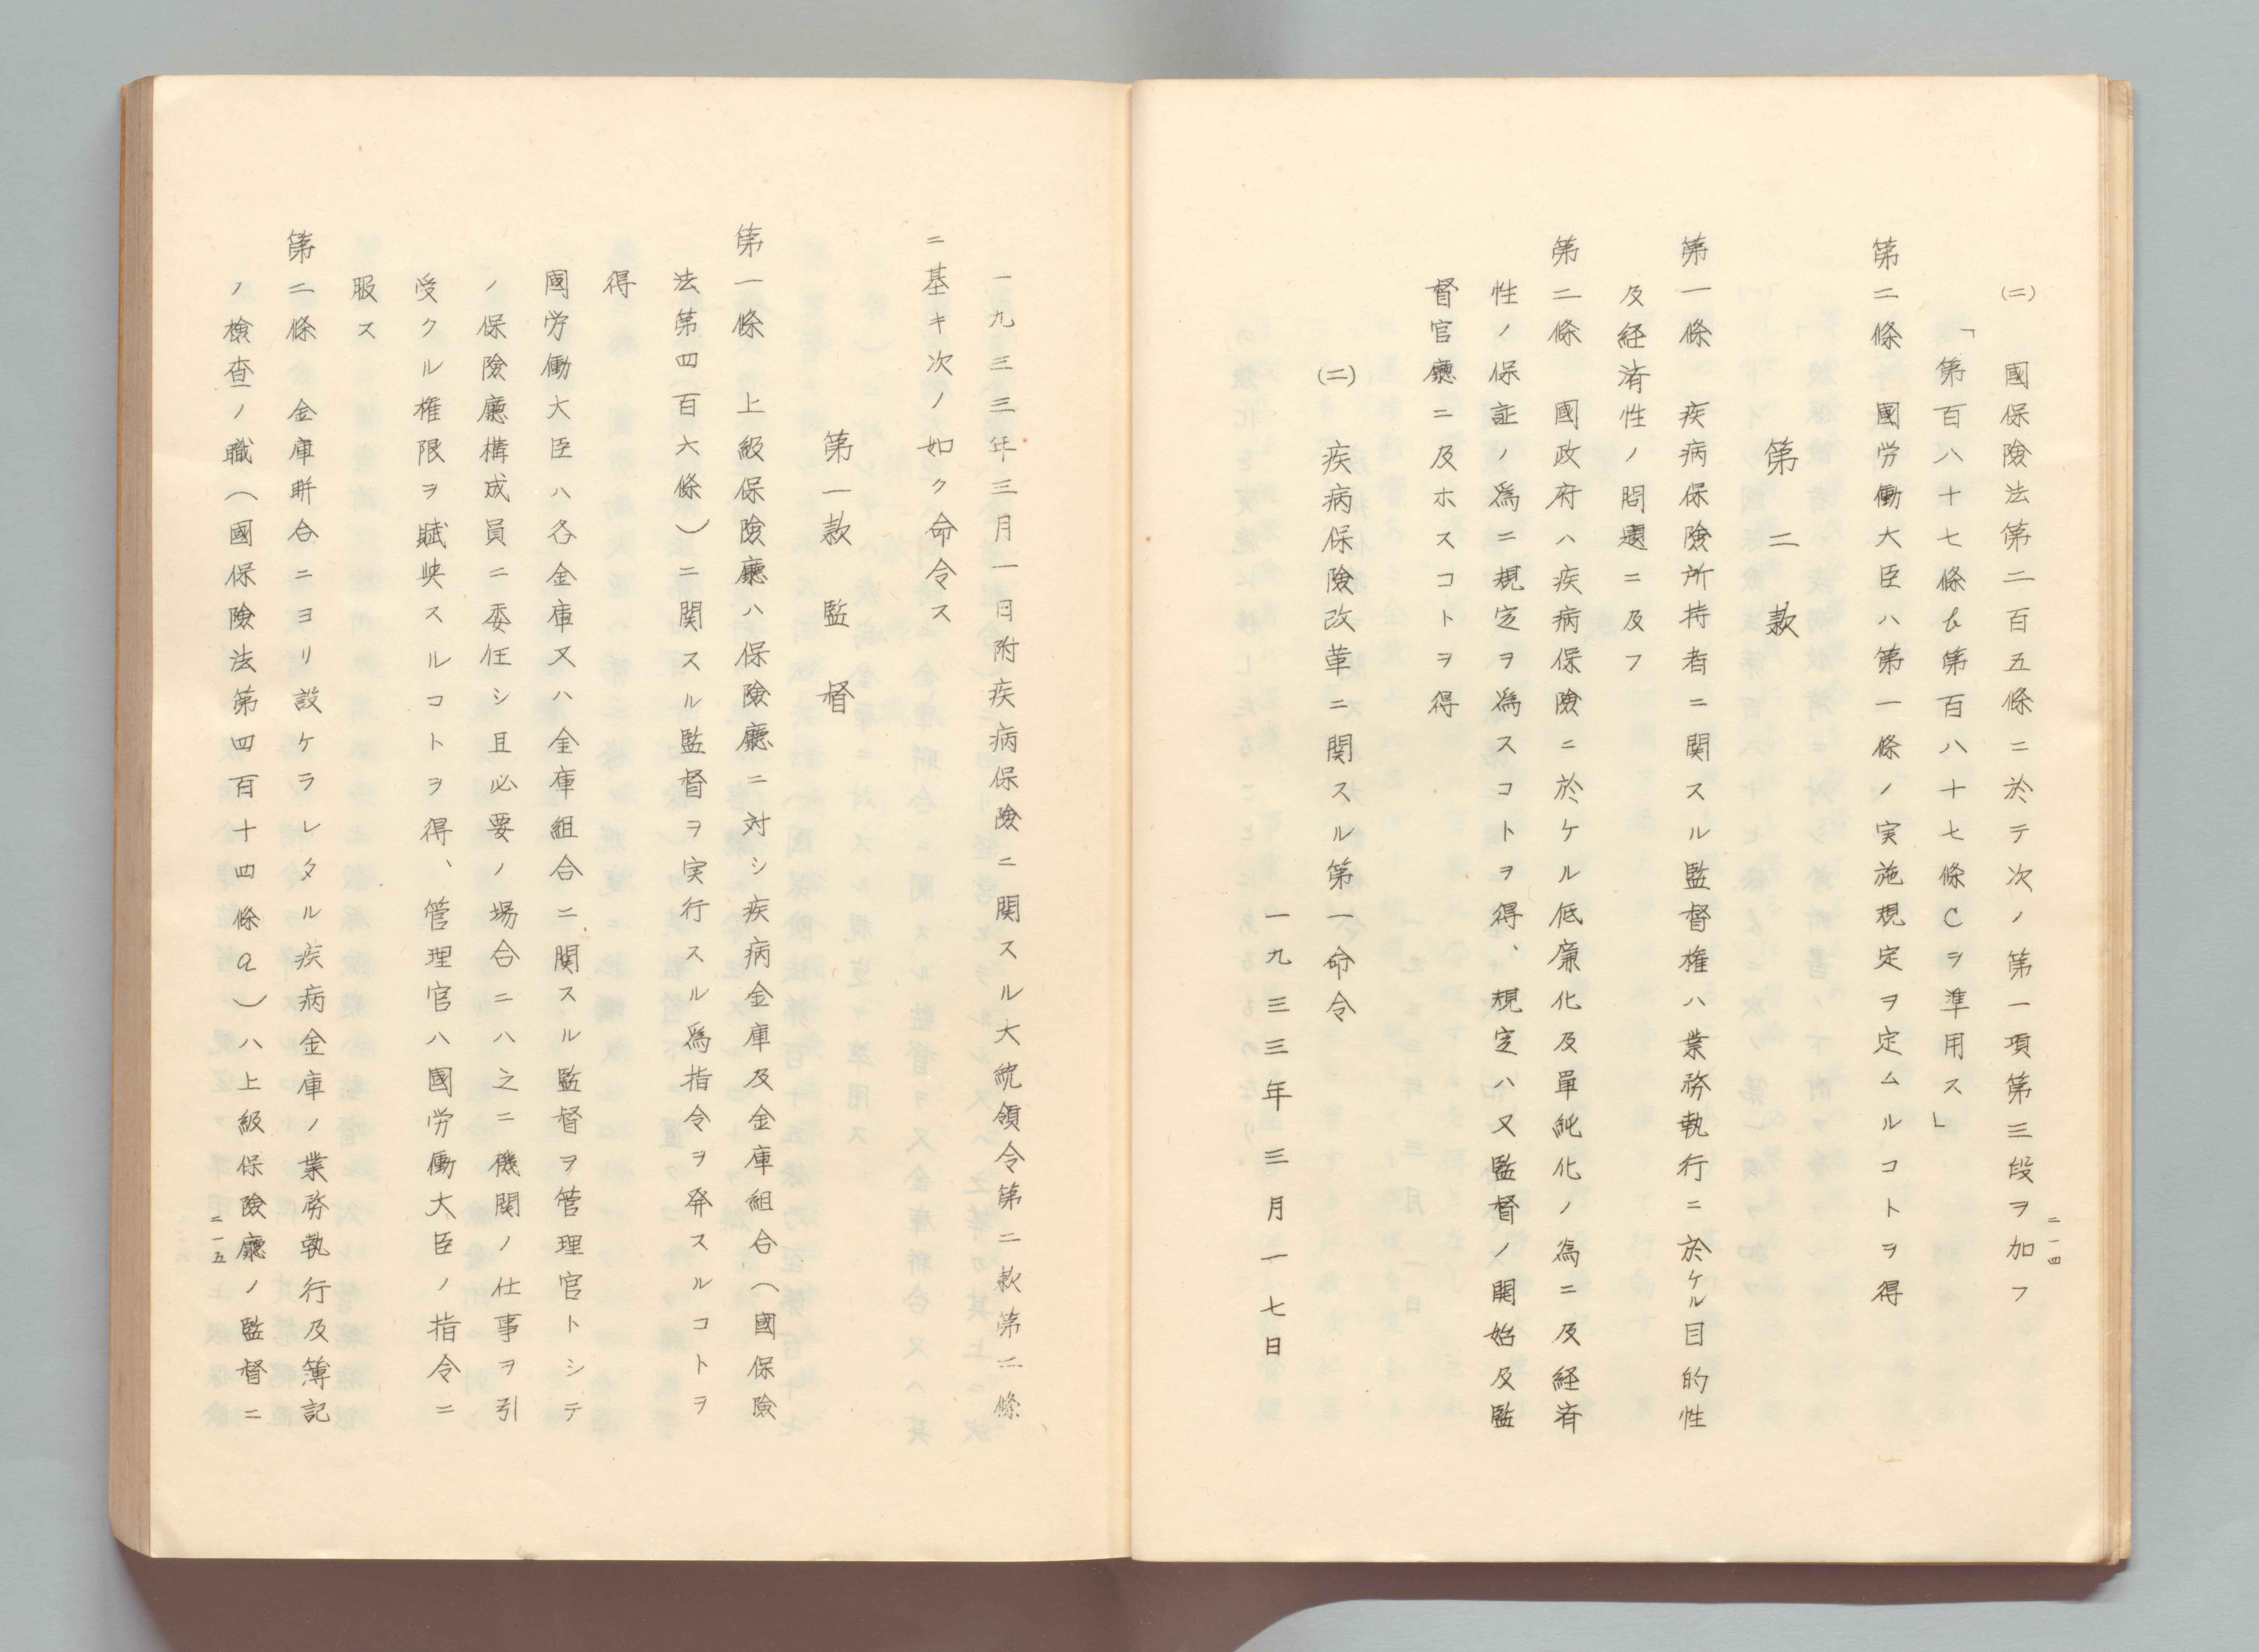 (二)　國保險法第二百五條ニ於テ次ノ第一項第三段ヲ加フ
「第百八十七條b第百八十七條Cヲ準用ス」
第二條　國労働大臣ハ第一條ノ実施規定ヲ定ムルコトヲ得
第二款
第一條　疾病保險所持者ニ関スル監督権ハ業務執行ニ於ケル目的性
及経済性ノ問題ニ及フ
第二條　國政府ハ疾病保險ニ於ケル低廉化及單純化ノ為ニ及経済
性ノ保証ノ為ニ規定ヲ為スコトヲ得、規定ハ又監督ノ開始及監
督官廳ニ及ホスコトヲ得
(二)　疾病保險改革ニ関スル第一命令
一九三三年三月一七日
二一四
一九三三年三月一日附疾病保險ニ関スル大統領令第二款第二條
ニ基キ次ノ如ク命令ス
第一款　監督
第一條　上級保險廳ハ保險廳ニ対シ疾病金庫及金庫組合（國保險
法第四百六條）ニ関スル監督ヲ実行スル為指令ヲ発スルコトヲ
得
國労働大臣ハ各金庫又ハ金庫組合ニ関スル監督ヲ管理官トシテ
ノ保險廳構成員ニ委任シ且必要ノ場合ニハ之ニ機関ノ仕事ヲ引
受クル権限ヲ賦与スルコトヲ得、管理官ハ國労働大臣ノ指令ニ
服ス
第二條　金庫聯合ニヨリ設ケラレタル疾病金庫ノ業務執行及簿記
ノ檢査ノ職（國保險法第四百十四條a）ハ上級保險廳ノ監督ニ
二一五